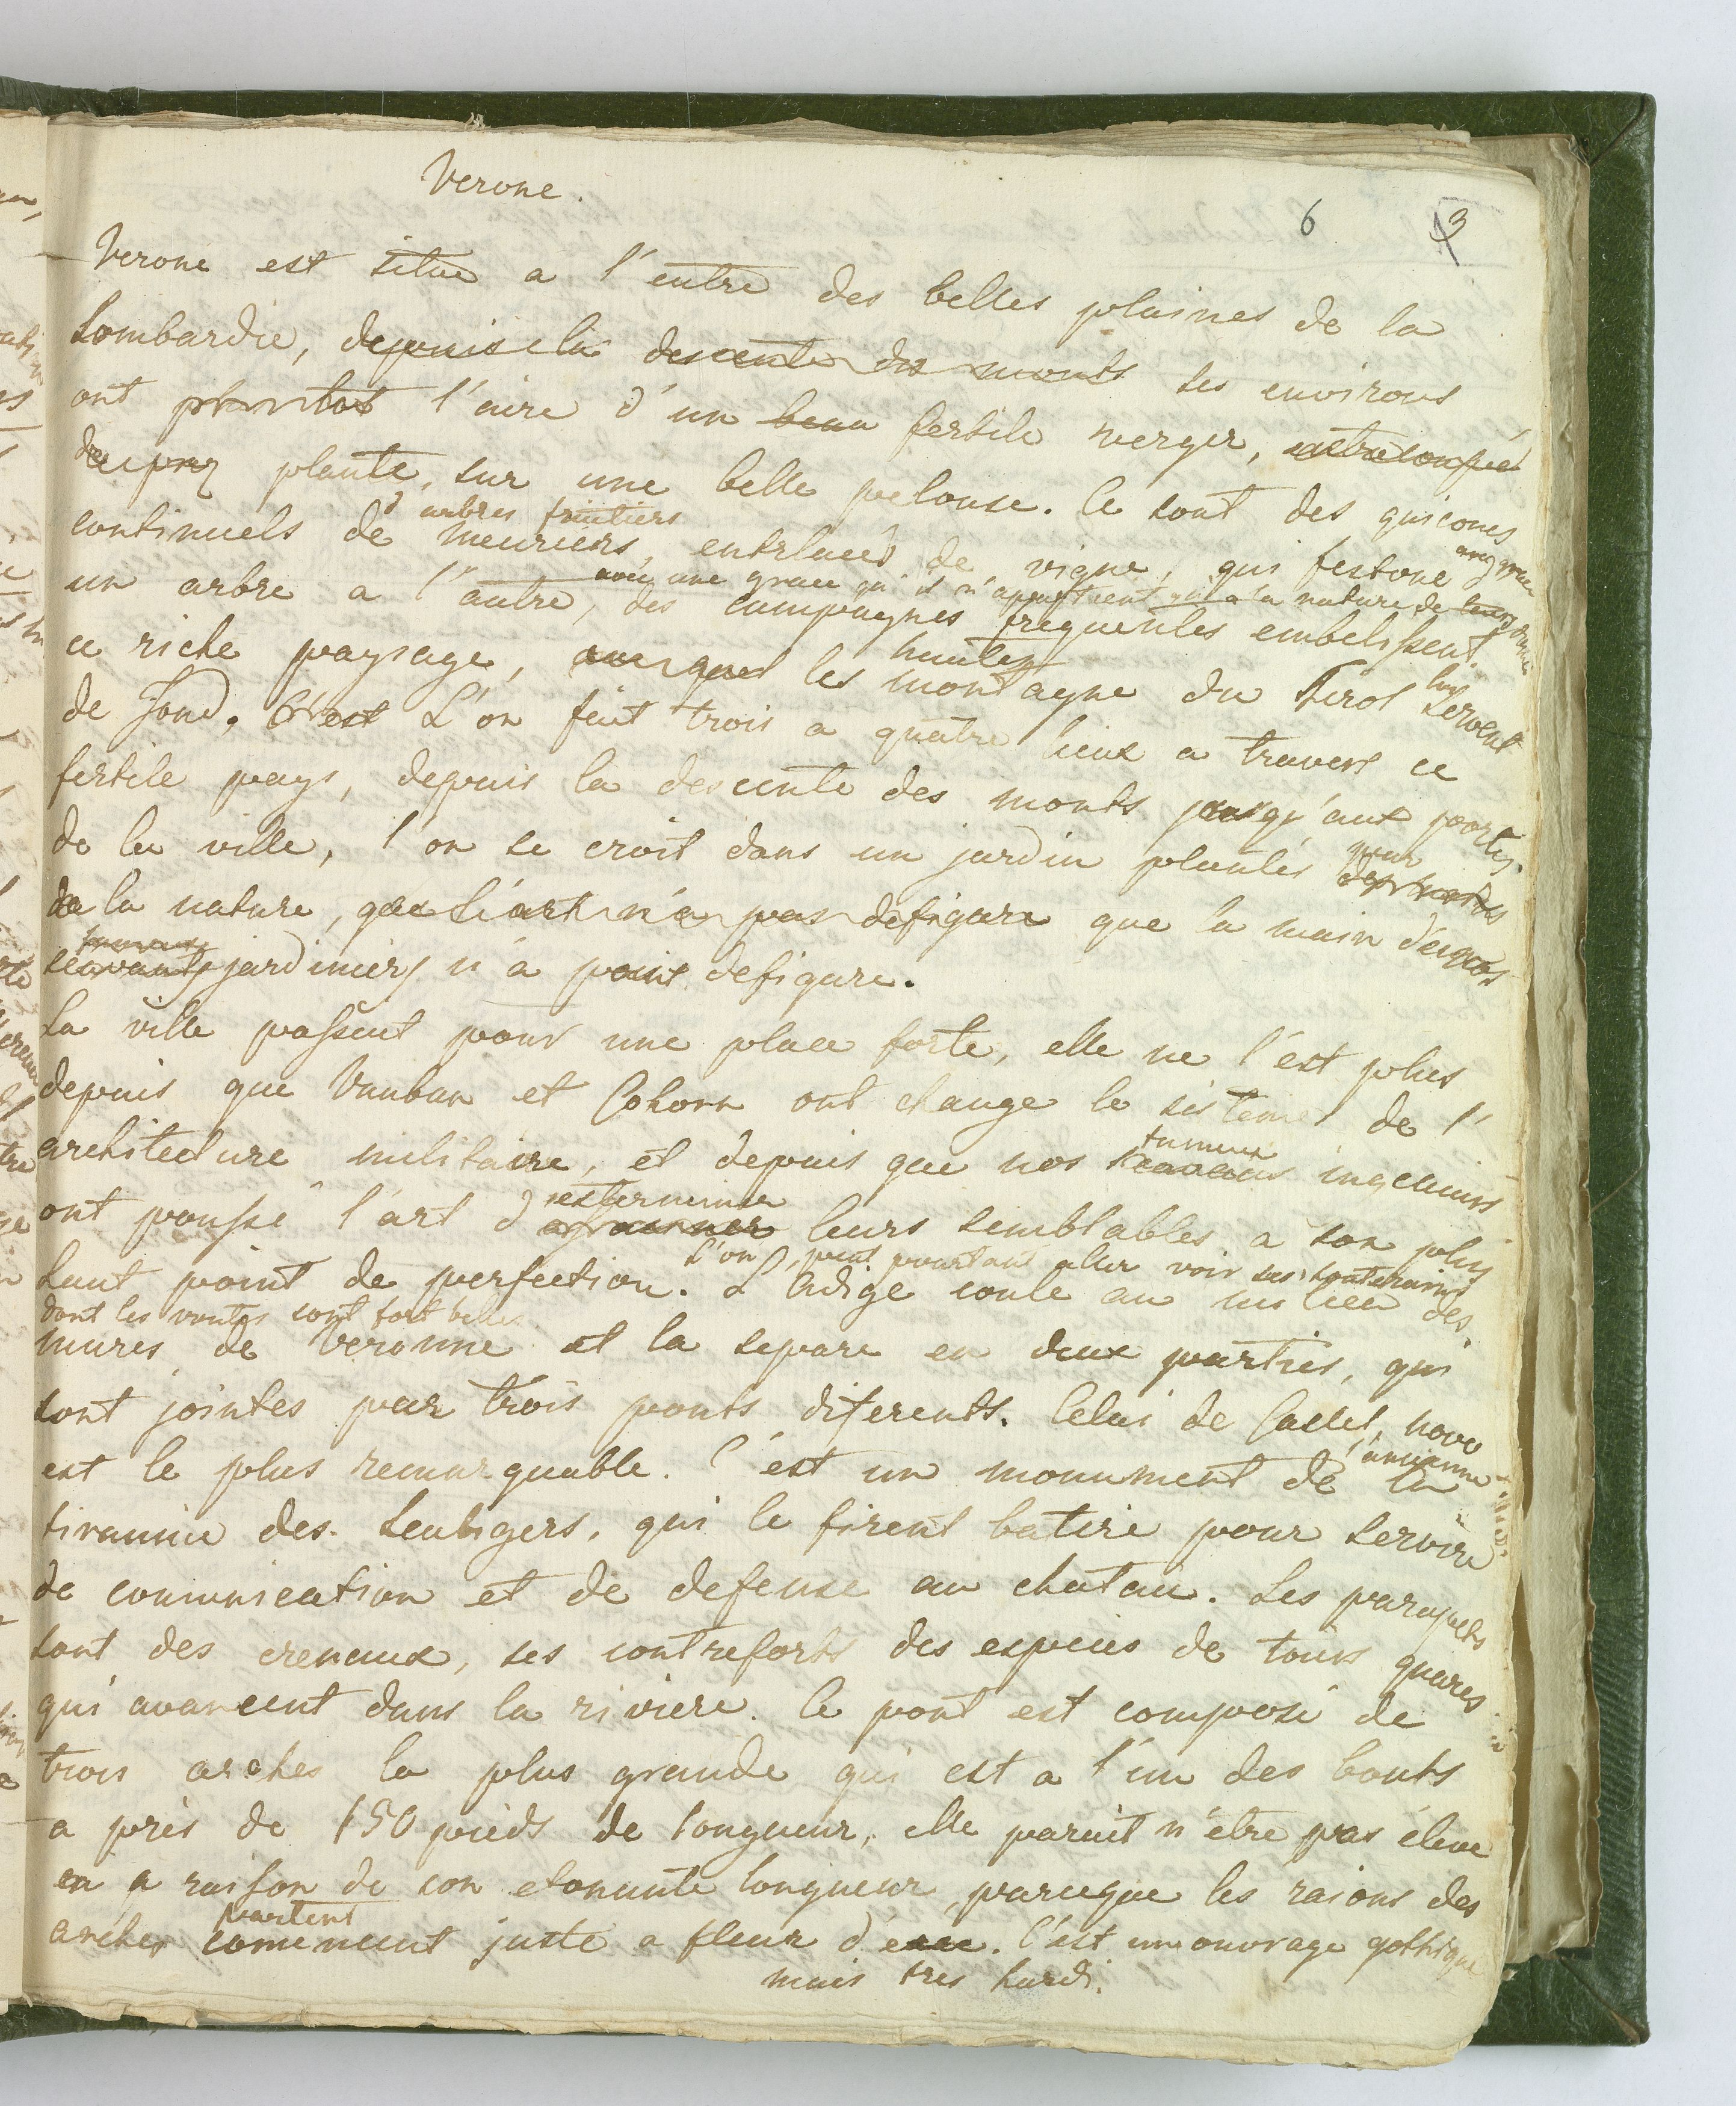 Verone.
6 3
Verone est situe a l'entre des belles plaines de la
Lombardie, depuis la descente des monts ses environs
ont plantot l'aire d'un beau fertile verger, entrecoupés
plante, sur une belle pelouse. Ce sont des quiconcs
d'arbres fruitiers
continuels de meuriers, entrlacés de vigne, qui festone
avec une grace qu'il n'apartient qu'a la nature de
un arbre a l'autre, des campagnes frequentes embelissent
hautes
ce riche paysage, les montagne du Tirol lui servent
de fond. C'est L'on fait trois a quatre lieux a travers ce
fertile pays, depuis la descente des monts jusqu'aux portes
de la ville, l'on se croit dans un jardin plantés par
de la nature, que l'art n'a pas defigure que la main
fameux
scavants jardiniers n'a point defigure.
La ville passent pour une place forte, elle ne l'est plus
depuis que Vauban et Cohorn ont change le sisteme de l'
architecture militaire, et depuis que nos fameux ingenieurs
exterminer
ont poussé l'art d' leurs semblables a son plus
L'on peut pourtant aller voir ses souterains
haut point de perfection. L'Adige coule au milieu des
dont les voutes sont fort belles
mures de Veronne et la separe en deux parties, qui
sont jointes par trois ponts diferents. Celui de Castel novo
l'ancienne
est le plus remarquable. C'est un monument de la
tirannie des Scaligers, qui le firent batire pour servire
de comunication et de defense au chatau. Les parapets
sont des crenaux, ses contreforts des especes de tours quares
qui avancent dans la riviere. Ce pont est composé de
trois arches la plus grande qui est a l'un des bouts
a près de 150 pieds de longueur, elle parait n'être pas éleve
en a raison de son etonante longueur, parceque les raions des
partent
arches comencent juste a fleur d'eau. C'est un ouvrage gothique
mais tres hardi.